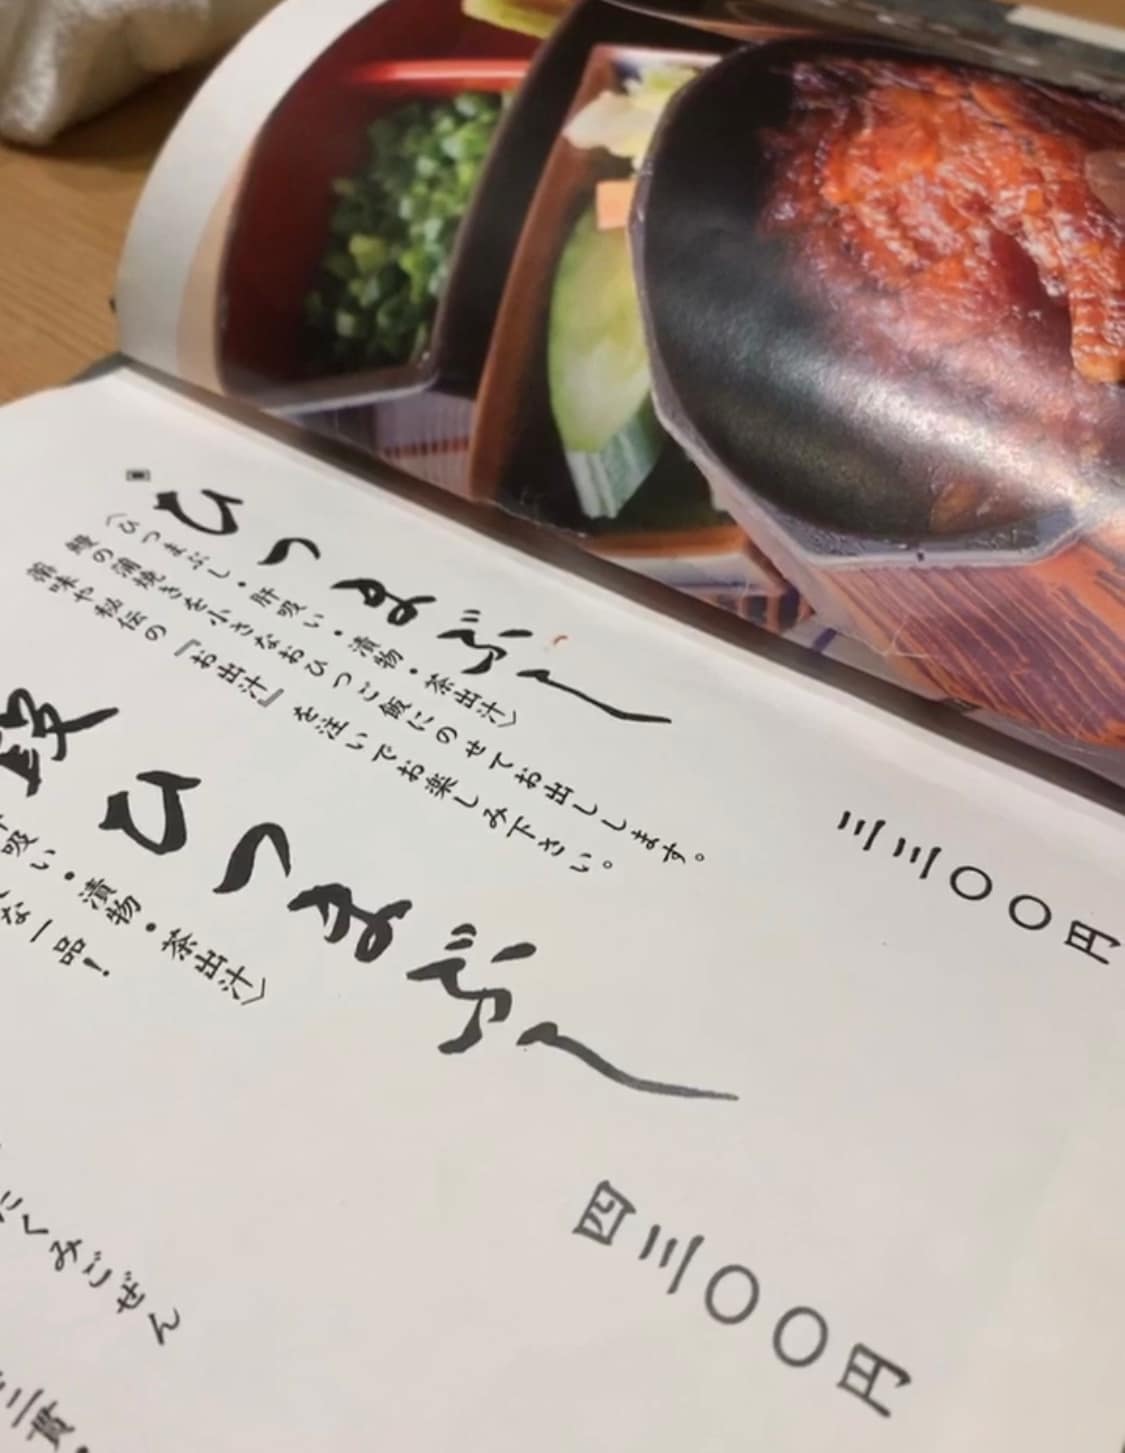 ひつまぶし
〈ひつまぶし・肝吸い・漬物・茶出汁〉
鰻の蒲焼きを小さなおひつご飯にのせてお出しします。
薬味や秘伝の『お出汁』を注いでお楽しみ下さい。
三三〇〇円
段ひつまぶし
吸い・漬物・茶出汁〉
な一品!
四三〇〇円
たくみごぜん
三貫・